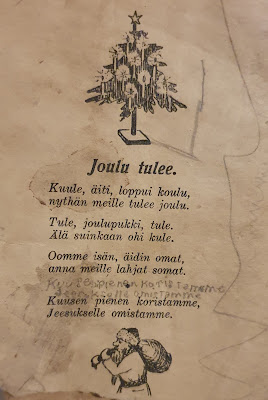 Joulu tulee.
Kuule, äiti, loppui koulu,
nythän meille tulee joulu.
Tule, joulupukki, tule.
Älä suinkaan ohi kule.
Oomme isän, äidin omat,
anna meille lahjat somat.
pienen koristamme
Jeesukselle omistamme
Kuusen pienen koristamme,
Jeesukselle omistamme.